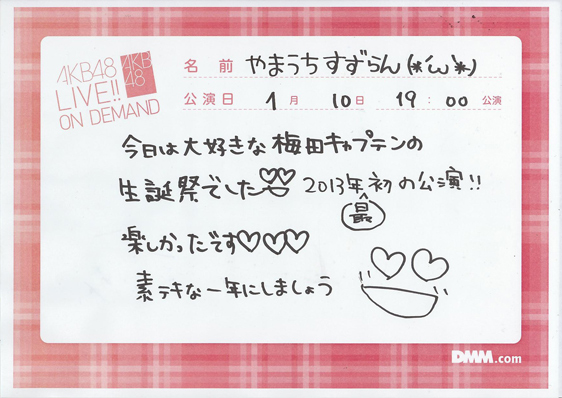 AKB48
LIVE!!
ON DEMAND
AKB
48
名前 やまうちすずらん(*´ω`*)
公演日 1月 10日 19:00 公演
今日は大好きな梅田キャプテンの
生誕祭でした 2013年最初の公演!!
楽しかったです♡♡♡
素テキな一年にしましょう
DMM.com